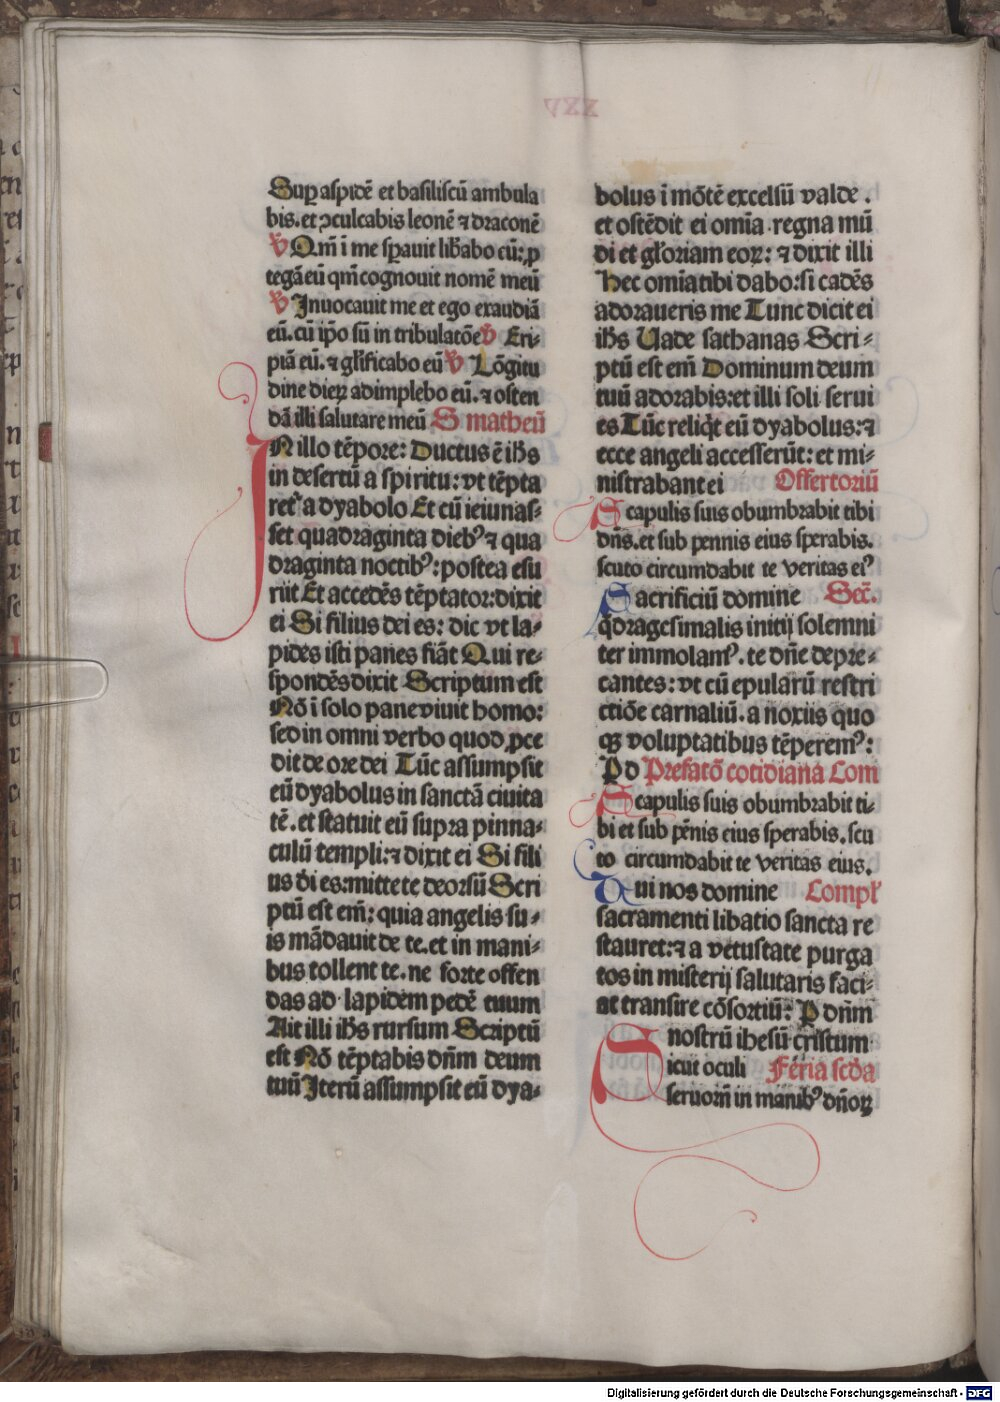 XXV
Suꝑ aspidē et basiliscū ambula
bis. et ꝯculcabis leonē ⁊ draconē
℣ Qm̄ ī me sꝑauit lib̄abo cū: ꝓ
tegā eū qm̄ cognouit nomē meū
℣ Inuocauit me et ego exaudiā
eū. cū ip̄o sū in tribulatōe ℣ Eri⸗
piā eū. ⁊ gl̄ificabo eū ℣ Lōgitu
dine dieꝝ adimplebo eū. ⁊ osten
dā illi salutare meū S matheū
IN illo tēpore: Ductus ē ih̄s
in desertū a spiritu: vt tēpta
retꝰ a dyabolo Et cū ieiunas⸗
set quadraginta diebꝰ ⁊ qua
draginta noctibꝰ: postea esu
riit Et accedēs tēptator: dixit
ei Si filius dei es: dic vt la⸗
pides isti panes fiāt Qui re⸗
spondēs dixit Scriptum est
Nō ī solo pane viuit homo:
sed in omni verbo quod ꝓce
dit de ore dei Tūc assumpsit
eū dyabolus in sanctā ciuita
tē. et statuit eū supra pinna⸗
culū templi: ⁊ dixit ei Si fili
us di es: mitte te deorsū Scri
ptū est em̄: quia angelis su⸗
is mādauit de te. et in mani⸗
bus tollent te. ne forte offen
das ad lapidem pedē tuum
Ait illi ih̄s rursum Scriptū
est Nō tēptabis dn̄m deum
tuū Iterū assumpsit eū dya⸗
bolus ī mōtē excelsū valde.
et ostēdit ei omīa regna mū
di et gloriam eoꝝ: ⁊ dixit illi
Hec omīa tibi dabo: si cadēs
adoraueris me Tunc dicit ei
ih̄s Uade sathanas Scri⸗
ptū est em̄ Dominum deum
tuū adorabis: et illi soli serui
es Tūc reliq̄t eū dyabolus: ⁊
ecce angeli accesserūt: et mi⸗
nistrabant ei Offertoriū
Scapulis suis obumbrabit tibi
dn̄s. et sub pennis eius sperabis.
scuto circumdabit te veritas eiꝰ
Sacrificiū domine Sec̄.
q̄dragesimalis initij solemni
ter immolamꝰ. te dn̄e depre⸗
cantes: vt cū epularū restri
ctiōe carnaliū. a noxiis quo
qꝫ voluptatibus tēperemꝰ:
P d Prefatō cotidiana Com
Scapulis suis obumbrabit ti⸗
bi et sub pēnis eius sperabis. scu
to circumdabit te veritas eius.
Tui nos domine Compl̄
sacramenti libatio sancta re
stauret: ⁊ a vetustate purga
tos in misterij salutaris faci⸗
at transire cōsortiū: P dn̄m
nostrū ihesū cristum
Sicut oculi Feria scd̄a
seruorm̄ in manibꝰ dn̄oꝝ
Digitalisierung gefördert durch die Deutsche Forschungsgemeinschaft - DFG